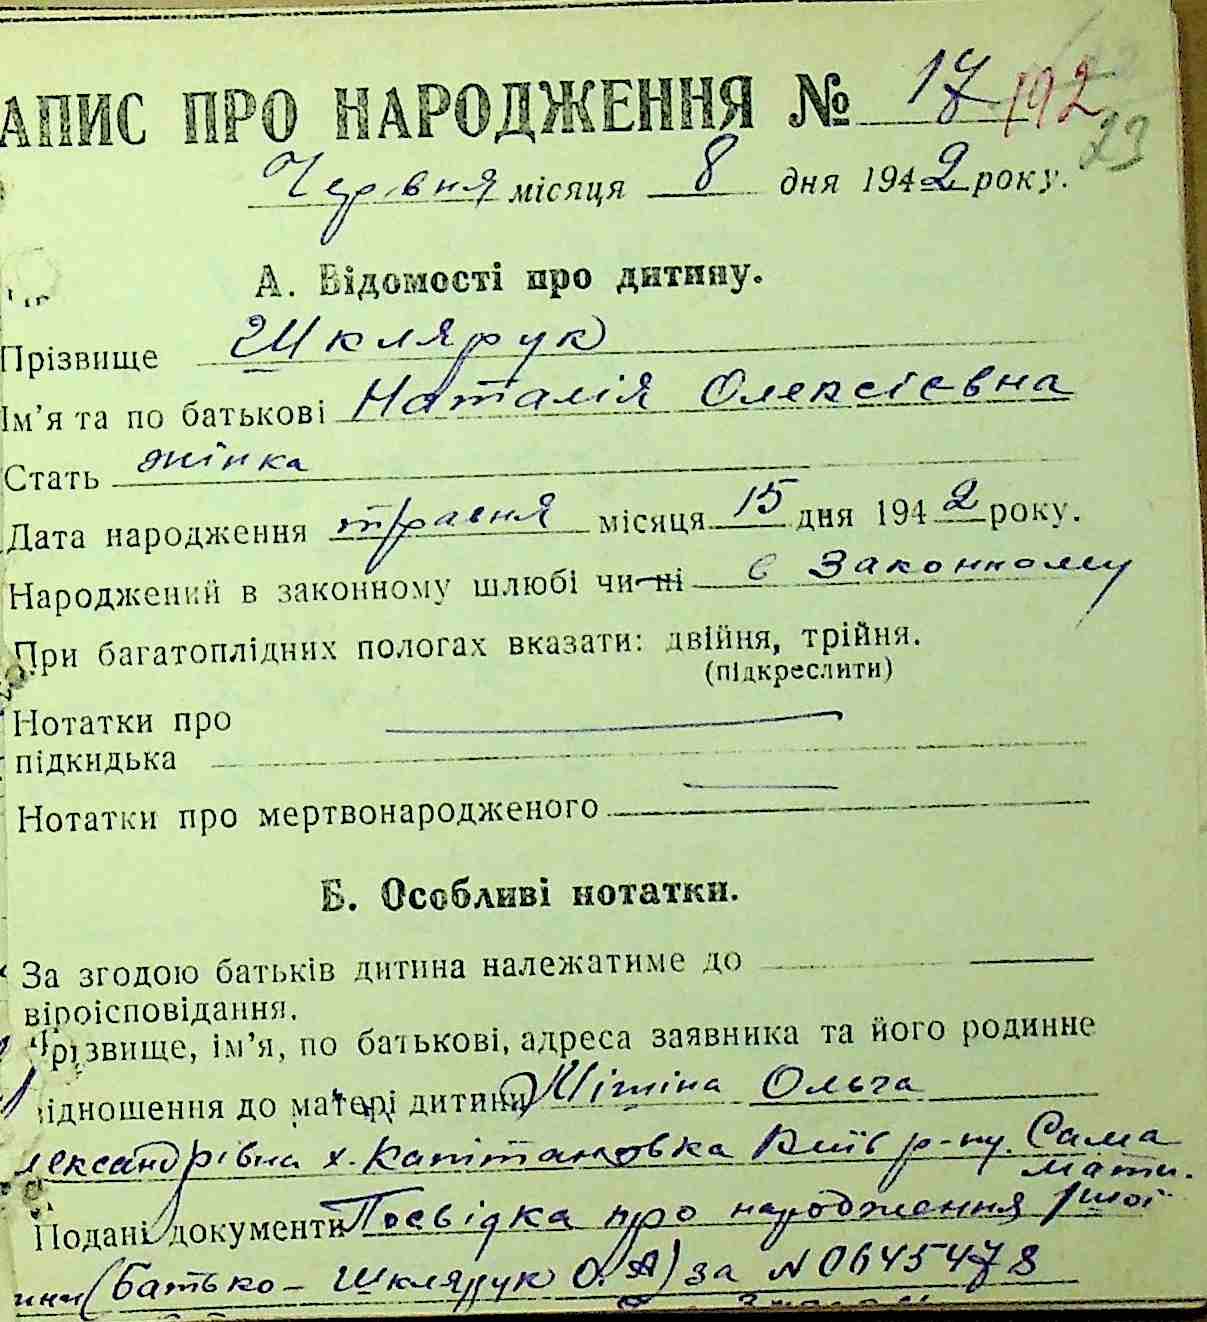 АПИС ПРО НАРОДЖЕННЯ № 17 192
23
Червня місяця 8 дня 1942 року.
А. Відомості про дитину.
Прізвище Шклярук
Ім'я та по батькові Наталія Олексієвна
Стать жінка
Дата народження травня місяця 15 дня 1942 року.
Народжений в законному шлюбі чи ні в законному
При багатоплідних пологах вказати: двійня, трійня.
(підкреслити)
Нотатки про
підкидька
Нотатки про мертвонародженого
Б. Особливі нотатки.
За згодою батьків дитина належатиме до
віроісповідання.
Прізвище, ім'я, по батькові, адреса заявника та його родинне
ідношення до матері дитини Мітіна Ольга
лександрівна х. Капітановка Київ р-ну. Сама
мати.
Подані документи Посвідка про народження
ини (батько - Шклярук О. А) за № 0645478